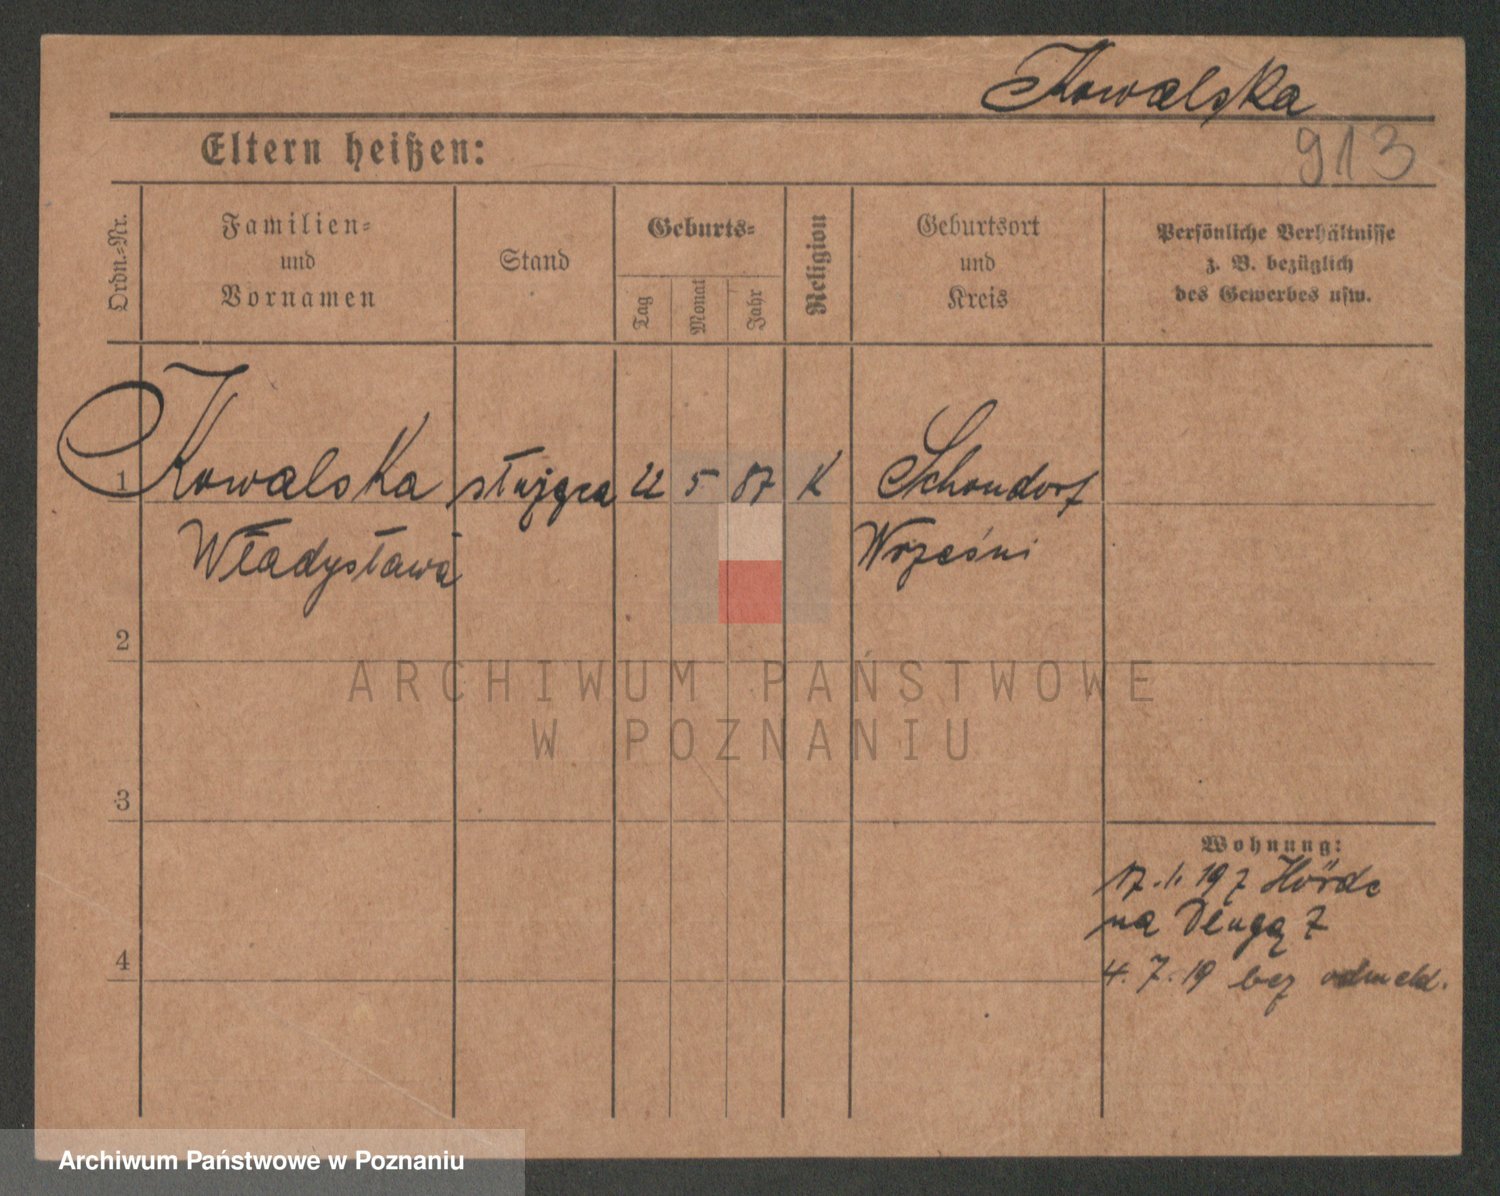 Kowalska
913
Eltern heißen:
Ordn.-Nr.
Familien-
und
Vornamen
Stand
Geburts-
Tag
Monat
Jahr
Religion
Geburtsort
und
Kreis
Persönliche Verhältnisse
z. B. bezüglich
des Gewerbes usw.
1 Kowalska służąca 22 5 87 K Schondorf
Władysława Wrześni
2
ARCHIWUM PAŃSTWOWE
W POZNANIU
3
Wohnung:
17. 1. 19 z Hörde
na Długą 7
4
4. 7. 19 bez odmeld.
Archiwum Państwowe w Poznaniu